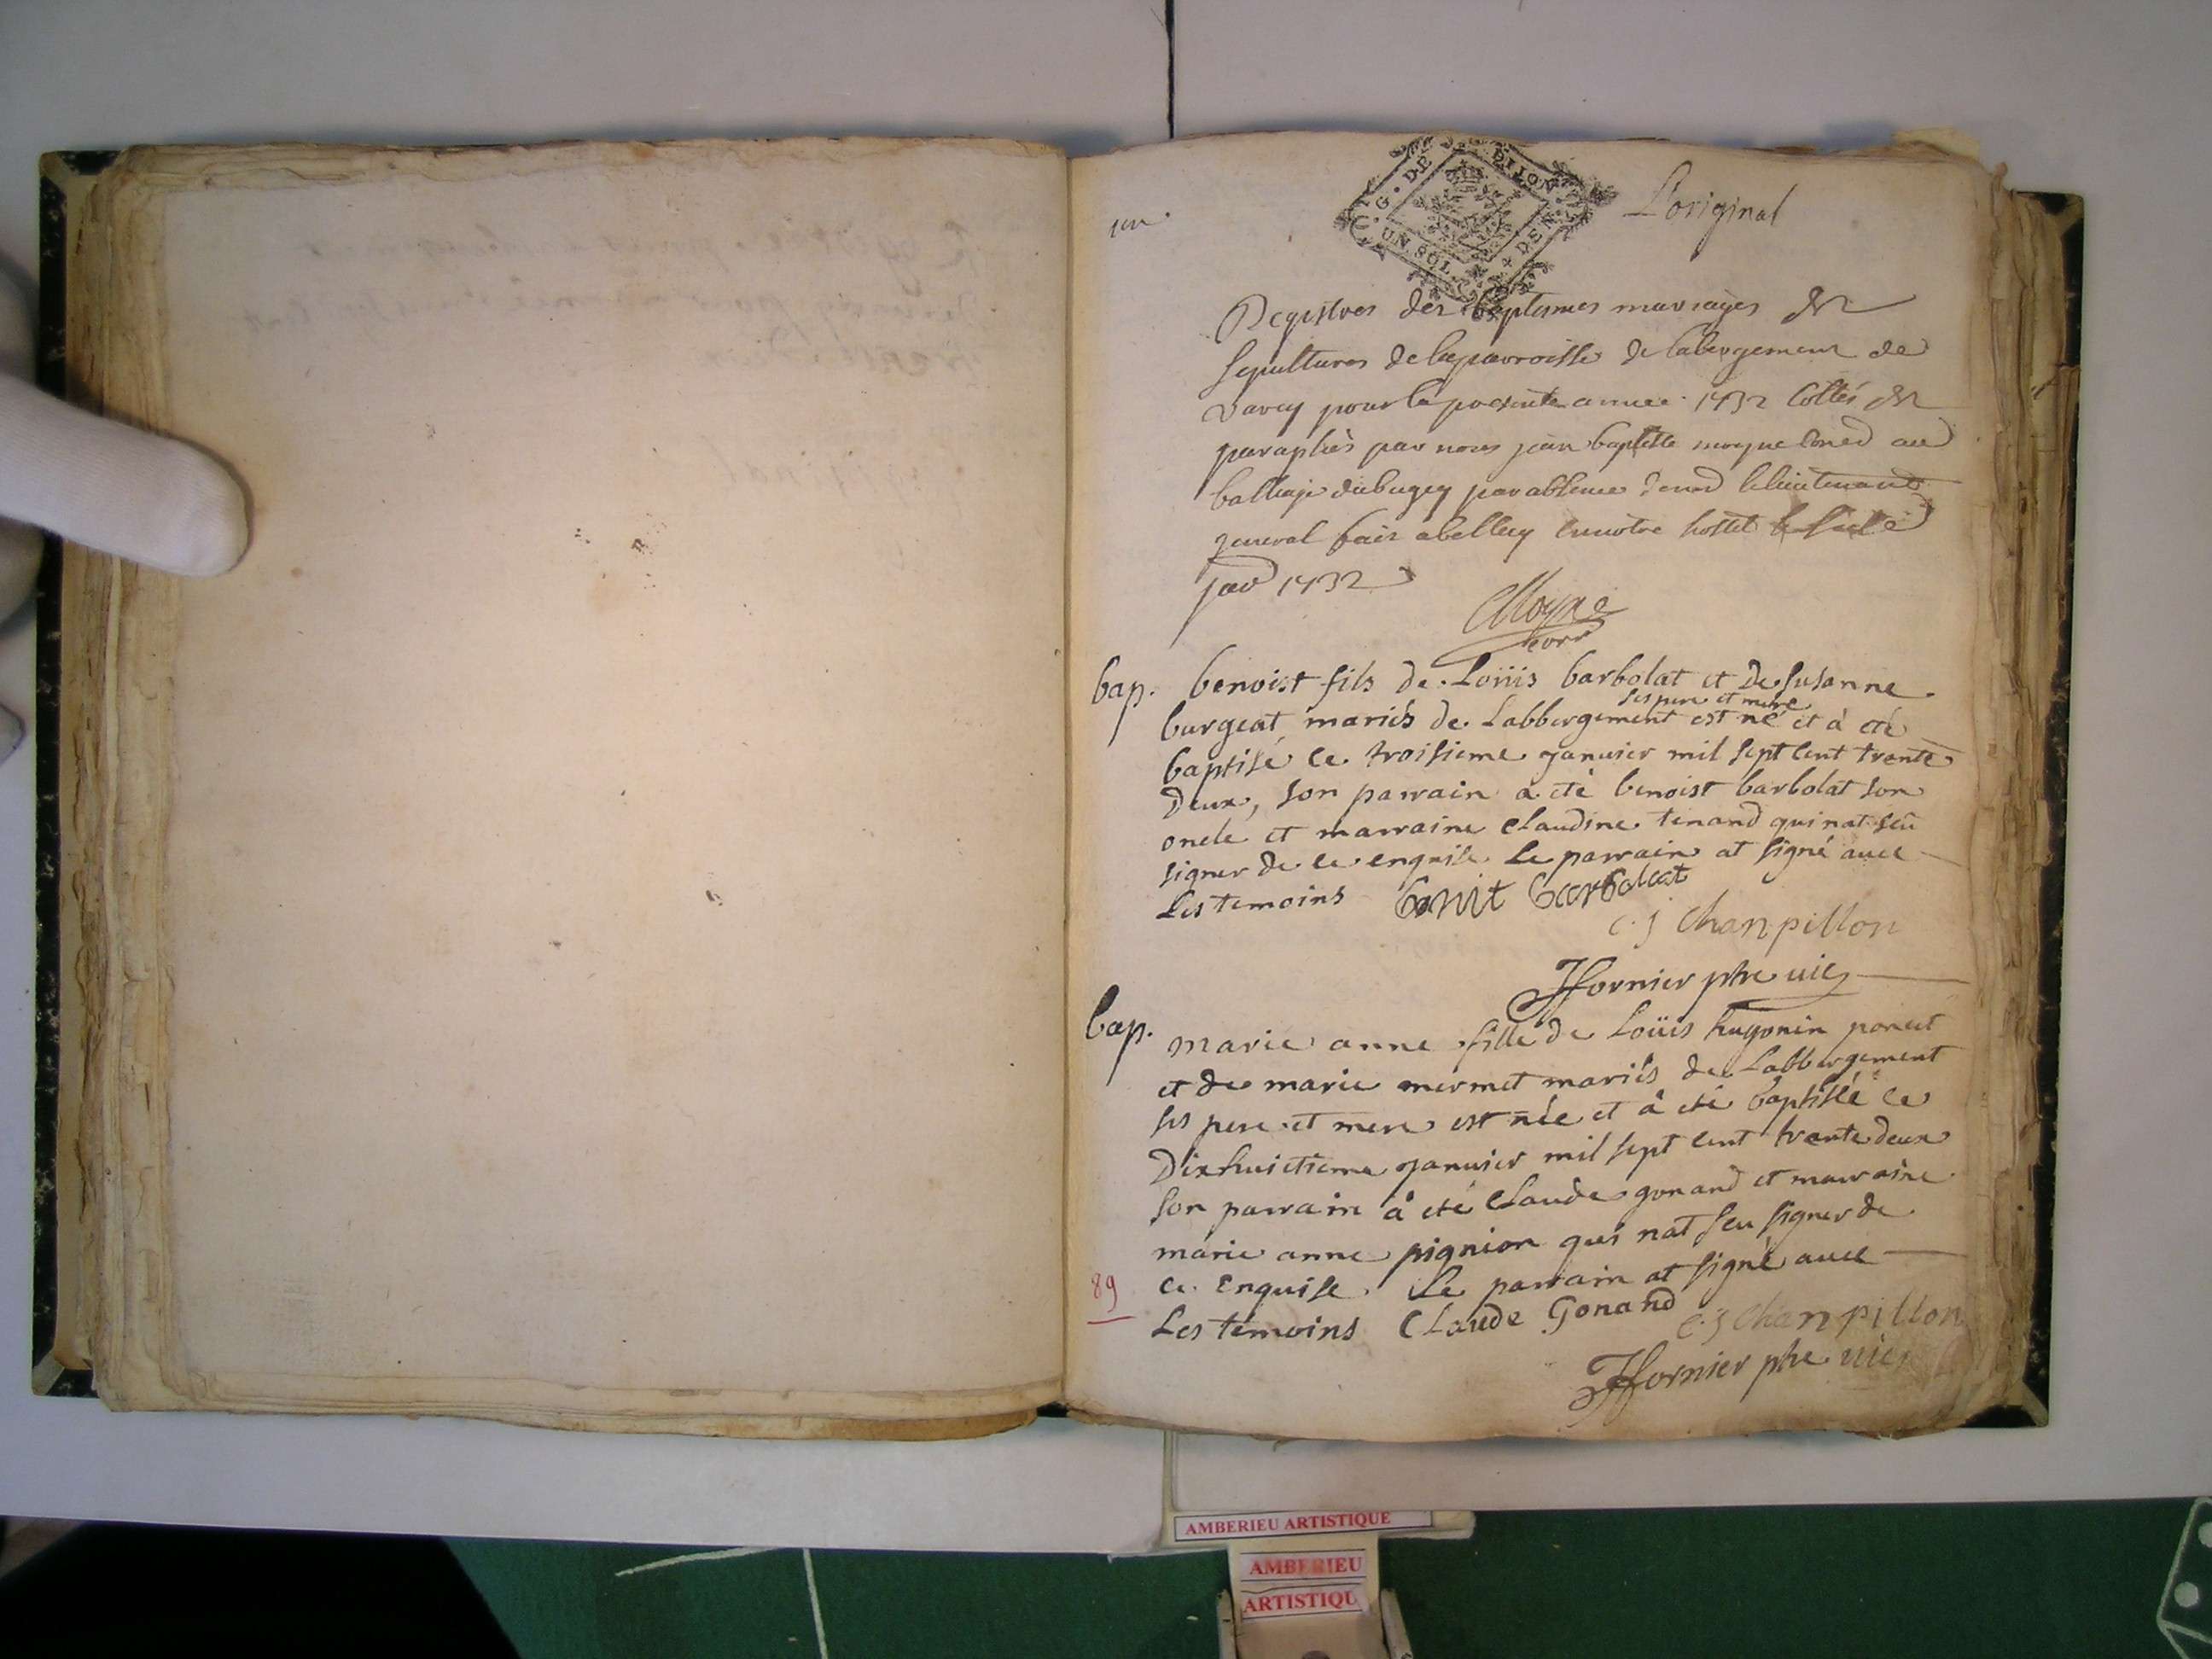 un.
G. DE DIJON
UN SOL DEN
L'original
Registres des baptesmes mariages &
sepultures de la parroisse de labergement de
varey pour la presente année 1732 Cottés &
paraphés par nous jean baptiste moyne Coner au
balliage du bugey par absence de mr le lieutenant
general fait a belley en notre hostel le
janv 1732
Moyne
bap. benoist fils de Loüis barbolat et de Susanne
ses pere et mere
burgeat mariés de Labbergement est né et à eté
baptisé ce troisieme janvier mil sept cent trente
Deux, son parrain a eté benoist barbolat son
oncle et marraine Claudine tenand qui nat sçu
signer de ce enquise le parrain at signé avec
Les temoins benoit barbolat
c. j chanpillon
JFornier ptre vic
bap. marie anne fille de Loüis hugonin poncet
et de marie mermet mariés de Labbergement
ses pere et mere est née et à eté baptisée ce
Dixhuictieme janvier mil sept cent trente deux
son parrain à eté Claude gonand et marraine
marie anne pignion qui nat seu signer de
ce Enquise. Le parrain at signé avec
89
Les temoins Claude Gonand c. j chanpillon
JFornier ptre vic
AMBERIEU ARTISTIQUE
AMBERIEU
ARTISTIQU